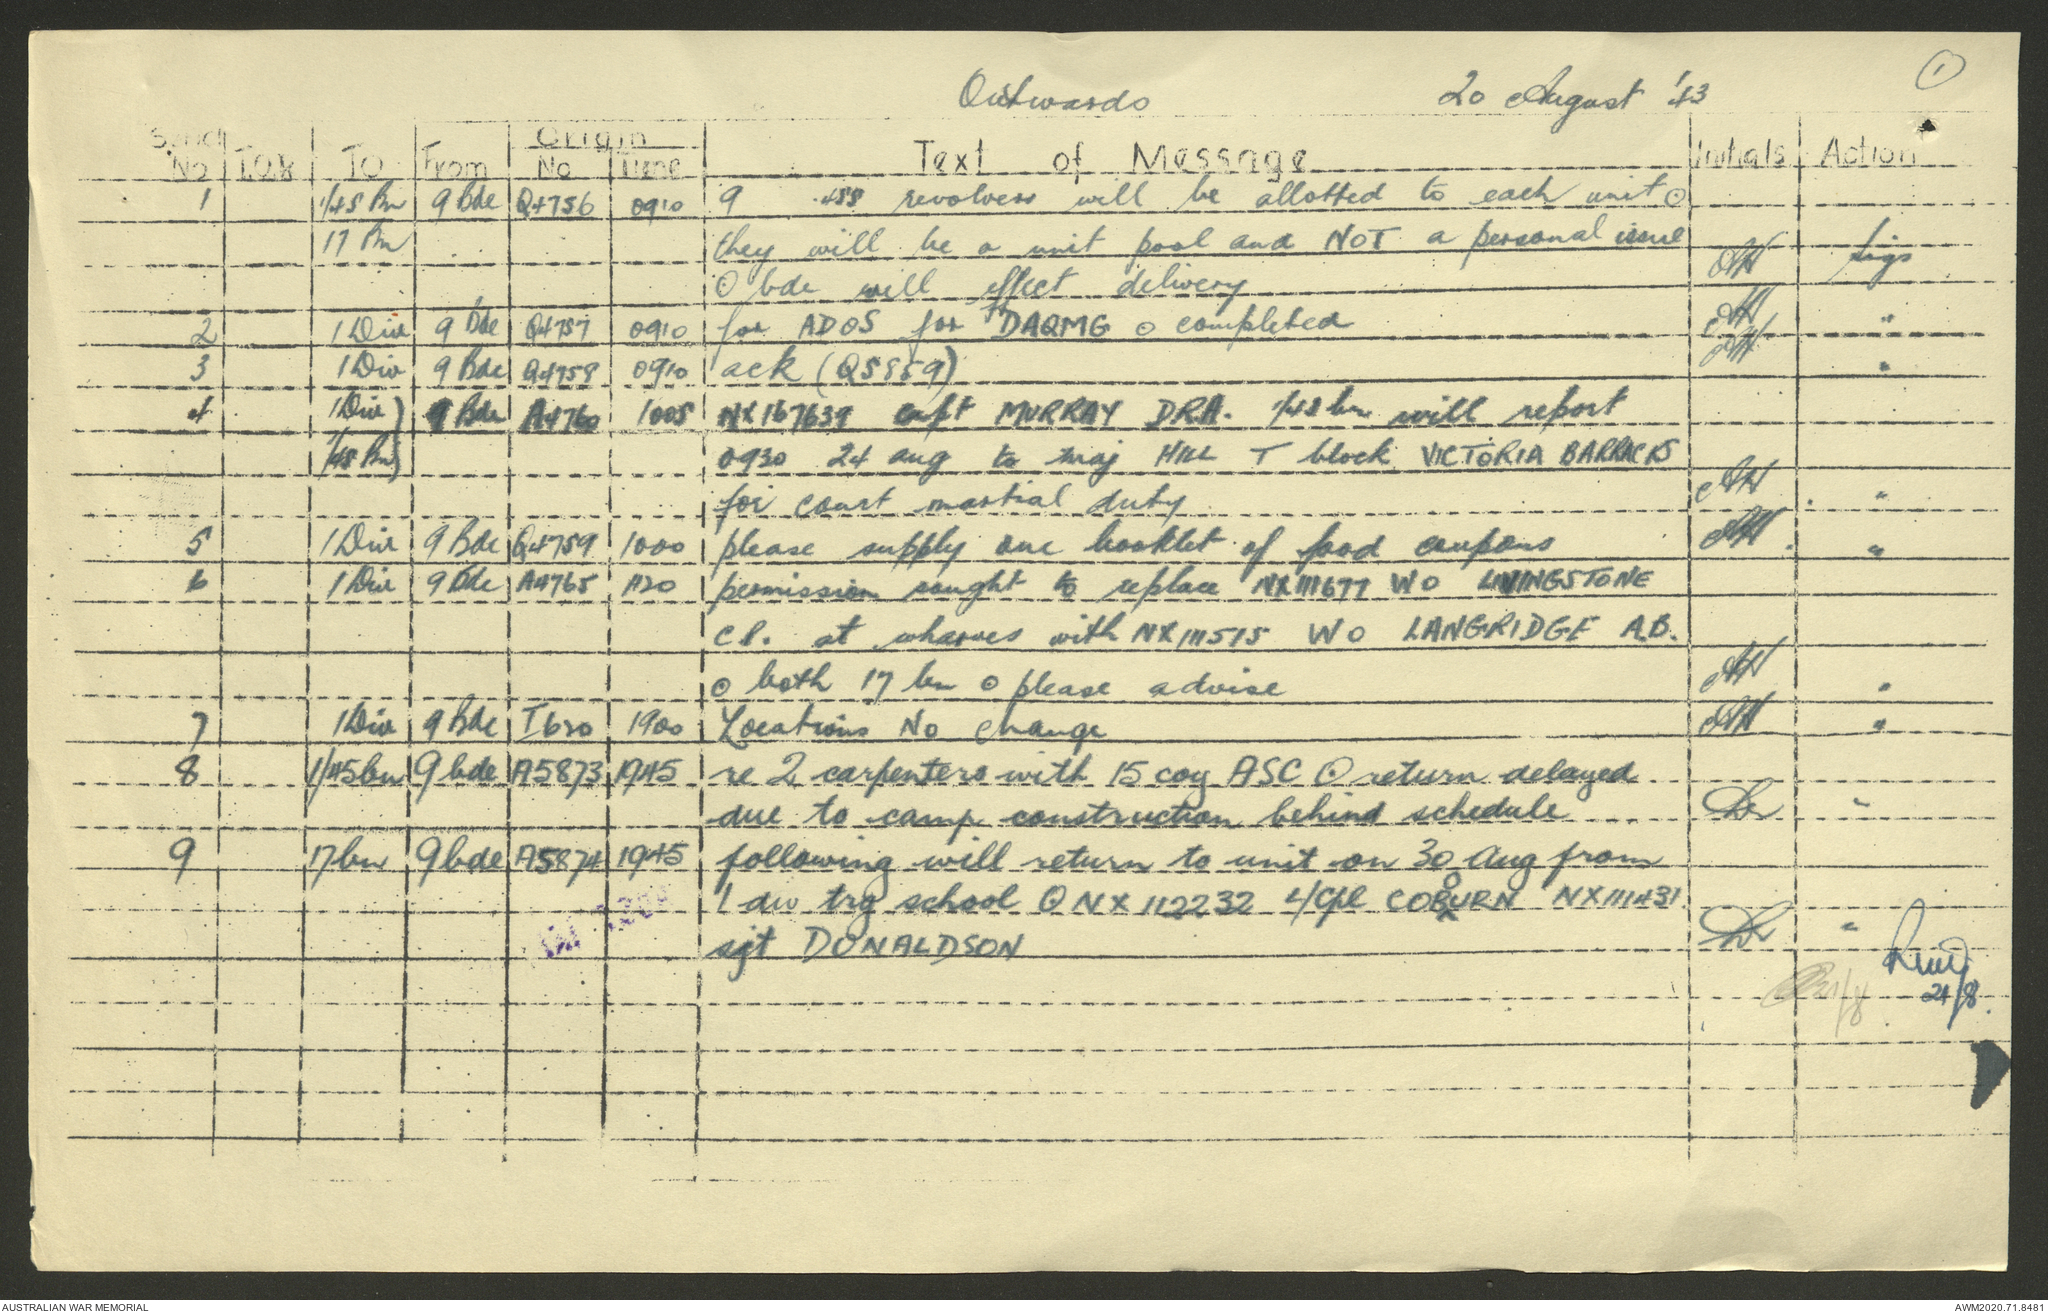 1
Outwards 20 August '43
Serial No T.O.R TO From Origin No Time Text of Message Initials Action
1 1/45 Bn 9 Bde Q4756 0910 9 .455 revolvers will be allotted to each unit ⊙
17 Bn they will be a unit pool and NOT a personal issue
⊙ bde will effect delivery Sigs
2 1 Div 9 Bde Q4757 0910 for ADOS for DAQMG ⊙ completed "
3 1 Div 9 Bde Q4758 0910 ack (Q5859) "
4 1 Div) 9 Bde A4760 1005 NX167639 capt MURRAY DRA. 1/45 bn will report
1/45 Bn) 0930 24 aug to maj HILL T block VICTORIA BARRACKS
for court martial duty "
5 1 Div 9 Bde Q4759 1000 please supply one booklet of food coupons "
6 1 Div 9 Bde A4765 1120 permission sought to replace NX111677 WO LIVINGSTONE
C.P. at wharves with NX111515 WO LANGRIDGE A.B.
⊙ both 17 bn ⊙ please advise "
7 1 Div 9 Bde I620 1900 Locations No change "
8 1/45 bn 9 bde A5873 1945 re 2 carpenters with 15 coy ASC ⊙ return delayed
due to camp construction behind schedule "
9 17 bn 9 bde A5874 1945 following will return to unit on 30 Aug from
1 div trg school ⊙ NX 112232 L/Cpl COBURN NX111431
sgt DONALDSON "
21/8 21/8.
AUSTRALIAN WAR MEMORIAL AWM2020.71.8481